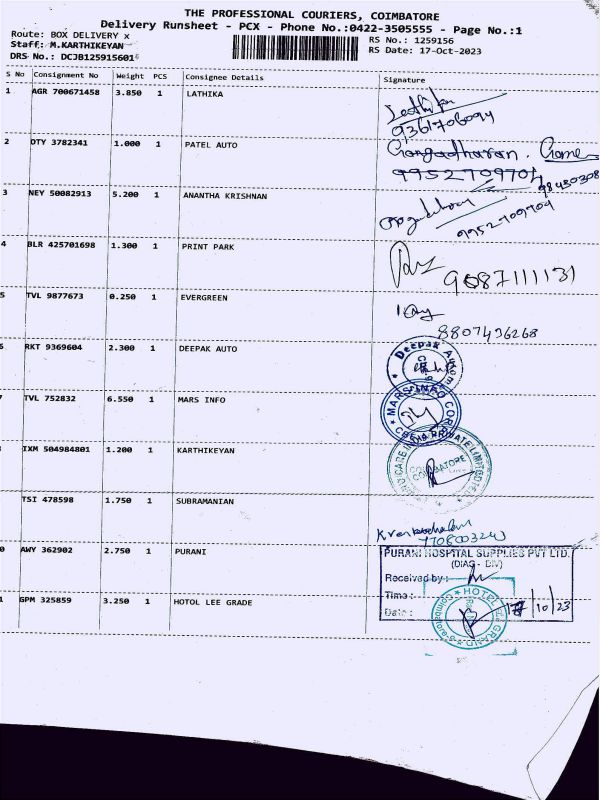 THE PROFESSIONAL COURIERS, COIMBATORE
Delivery Runsheet - PCX - Phone No.:0422-3505555 - Page No.:1
Route: BOX DELIVERY x
Staff: M.KARTHIKEYAN
DRS No.: DCJB125915601
RS No.: 1259156
RS Date: 17-Oct-2023
S No Consignment No Weight PCS Consignee Details Signature
1 AGR 700671458 3.850 1 LATHIKA
9361706094
2 DTY 3782341 1.000 1 PATEL AUTO
Gangadharan.
9952709704
3 NEY 50082913 5.200 1 ANANTHA KRISHNAN
9952709704
4 BLR 425701698 1.300 1 PRINT PARK
9087111131
5 TVL 9877673 0.250 1 EVERGREEN
8807436268
RKT 9369604 2.300 1 DEEPAK AUTO
Deepak Autom
TVL 752832 6.550 1 MARS INFO
MARS INFO COR
IXM 504984801 1.200 1 KARTHIKEYAN
PRIVATE LIMITED
COIMBATORE
TSI 478598 1.750 1 SUBRAMANIAN
0 AWY 362902 2.750 1 PURANI
PURANI HOSPITAL SUPPLIES PVT LTD.
(DIAG - DIV)
Received by:
Time:
Date: 17/10/23
1 GPM 325859 3.250 1 HOTOL LEE GRADE
HOTEL GRAND Coimbatore